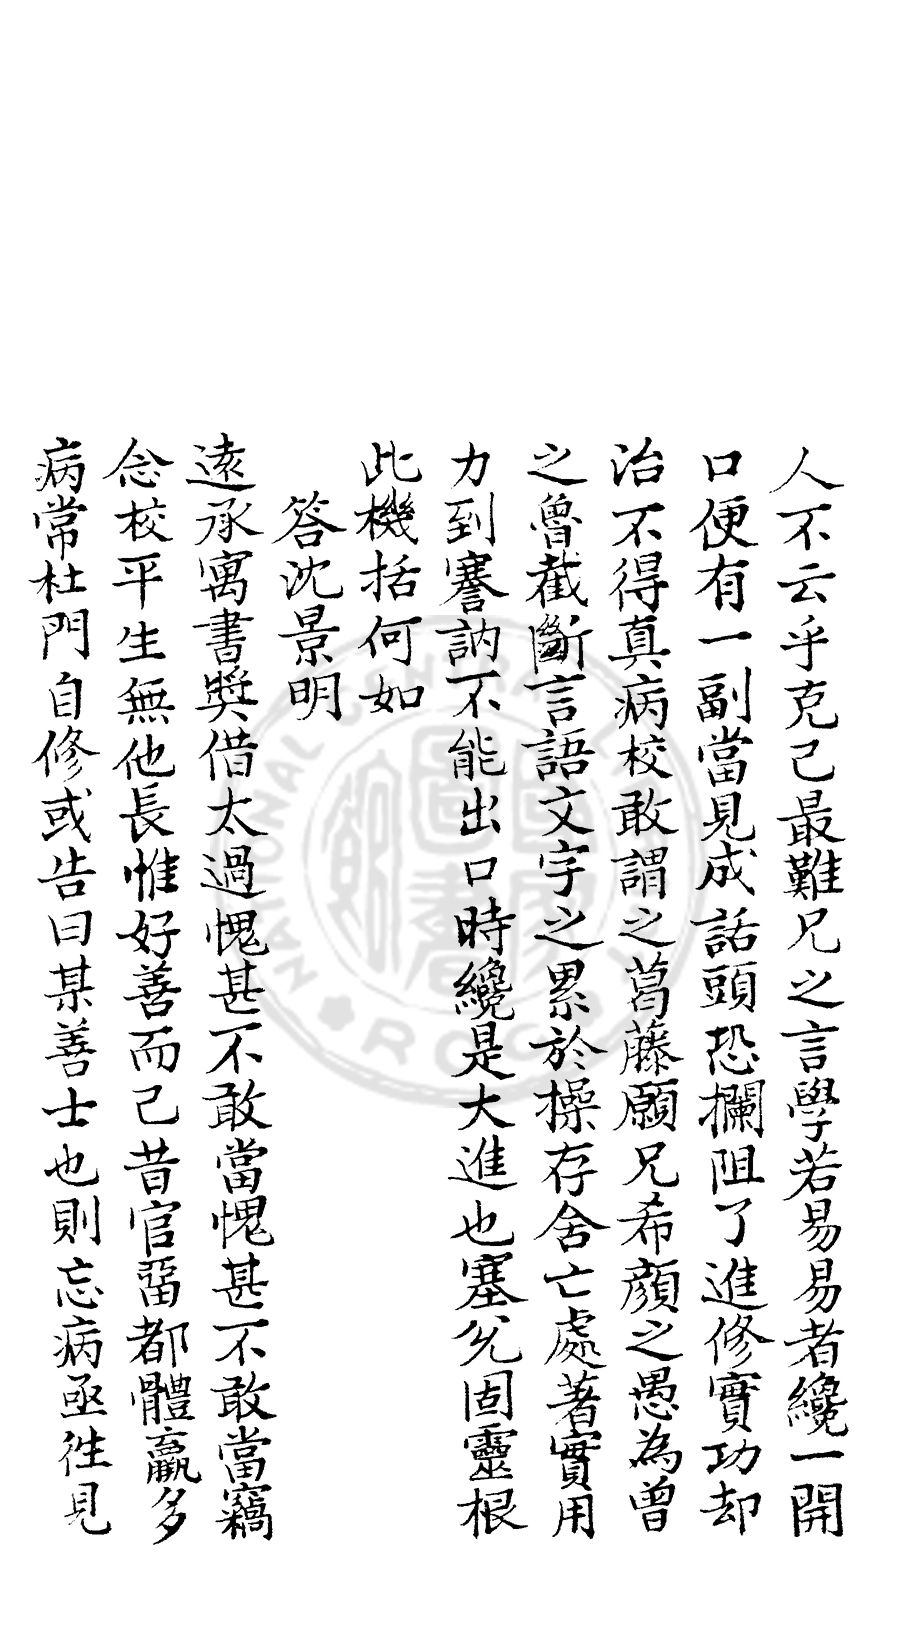 人不云乎克己最難兄之言學若易易者纔一開
口便有一副當見成話頭恐攔阻了進修實功却
治不得真病校敢謂之葛藤願兄希顔之愚為曾
之魯截斷言語文字之累於操存舍亡處著實用
力到謇訥不能出口時纔是大進也塞兊固靈根
此機括何如
答沈景明
逺承寓書奬借太過愧甚不敢當愧甚不敢當竊
念校平生無他長惟好善而已昔官畱都體羸多
病常杜門自修或告曰某善士也則忘病亟徃見
NATIONAL CENTRAL LIBRARY R.O.C.